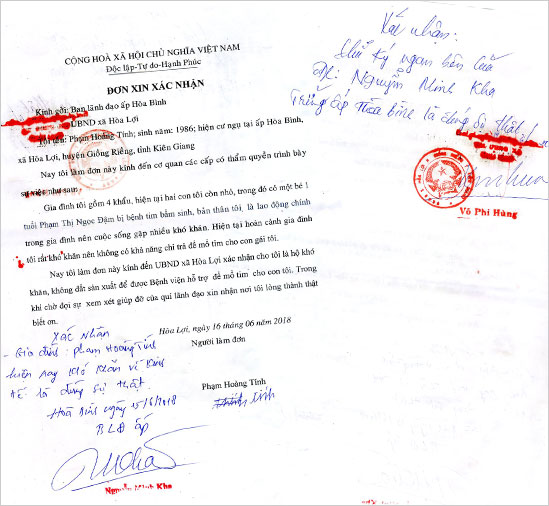 CỘNG HOÀ XÃ HỘI CHỦ NGHĨA VIỆT NAM
Độc lập-Tự do-Hạnh Phúc
ĐƠN XIN XÁC NHẬN
Kính gởi: Ban lãnh đạo ấp Hòa Bình
UBND xã Hòa Lợi
Tôi tên: Phạm Hoàng Tính; sinh năm: 1986; hiện cư ngụ tại ấp Hòa Bình,
xã Hòa Lợi, huyện Giồng Riềng, tỉnh Kiên Giang
Nay tôi làm đơn này kính đến cơ quan các cấp có thẩm quyền trình bày
sự việc như sau:
Gia đình tôi gồm 4 khẩu, hiện tại hai con tôi còn nhỏ, trong đó có một bé 1
tuổi Phạm Thị Ngọc Đậm bị bệnh tim bẩm sinh, bản thân tôi, là lao động chính
trong gia đình nên cuộc sống gặp nhiều khó khăn. Hiện tại hoàn cảnh gia đình
tôi rất khó khăn nên không có khả năng chi trả để mổ tim cho con gái tôi.
Nay tôi làm đơn này kính đến UBND xã Hòa Lợi xác nhận cho tôi là hộ khó
khăn, không đất sản xuất để được Bệnh viện hỗ trợ để mổ tim cho con tôi. Trong
khi chờ đợi sự xem xét giúp đỡ của quí lãnh đạo xin nhận nơi tôi lòng thành thật
biết ơn.
Hòa Lợi, ngày 16 tháng 06 năm 2018
Người làm đơn
Phạm Hoàng Tính
Tính
Xác Nhận
- Gia đình: Phạm Hoàng Tính
hiện nay khó khăn về kinh
tế là đúng sự thật.
Hoà Bình ngày 15/6/2018
BLĐ ấp
Nguyễn Minh Kha
Xác nhận:
chữ ký ngang bên của
Nguyễn Minh Kha
Trưởng ấp Hòa Bình là đúng sự thật!
Võ Phi Hùng